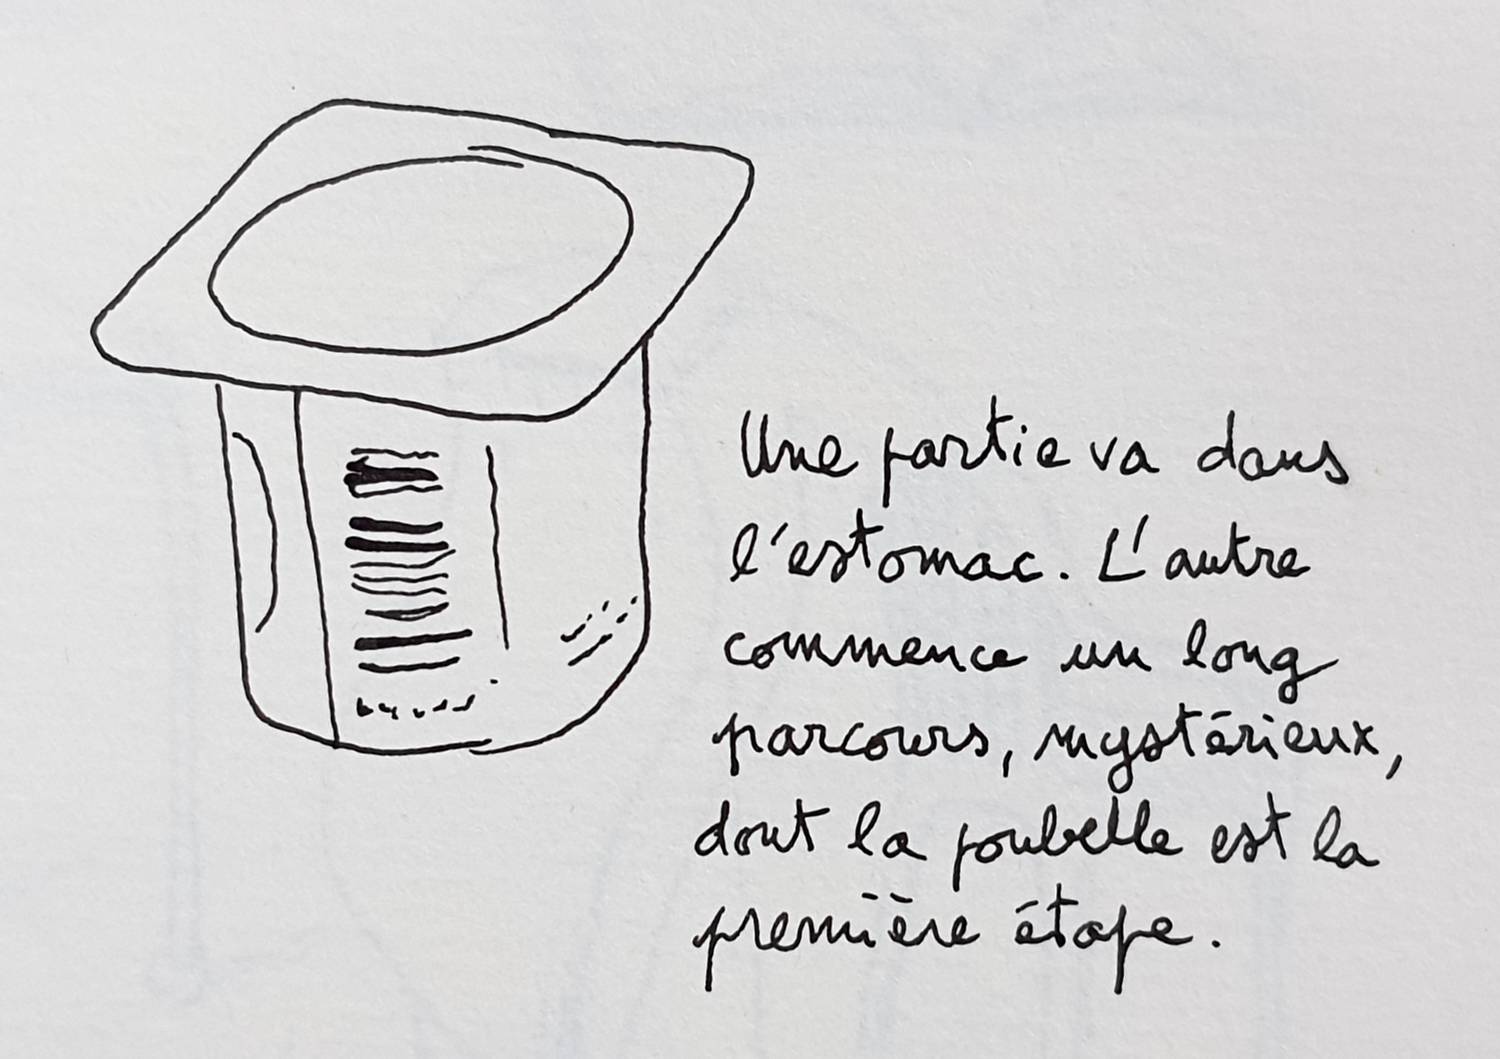 Une partie va dans
l'estomac. L'autre
commence un long
parcours, mystérieux,
dont la poubelle est la
première étape.